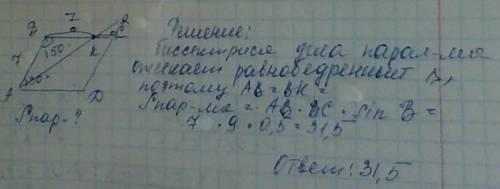 7
B
R
150°
K
7
A
D
Sпар-?
Решение:
Биссектриса угла парал-ма
отсекает равнобедренный Δ,
поэтому AB = BK =
Sпар-ма = AB · BC · sin B =
7 · 9 · 0,5 = 31,5
Ответ: 31,5